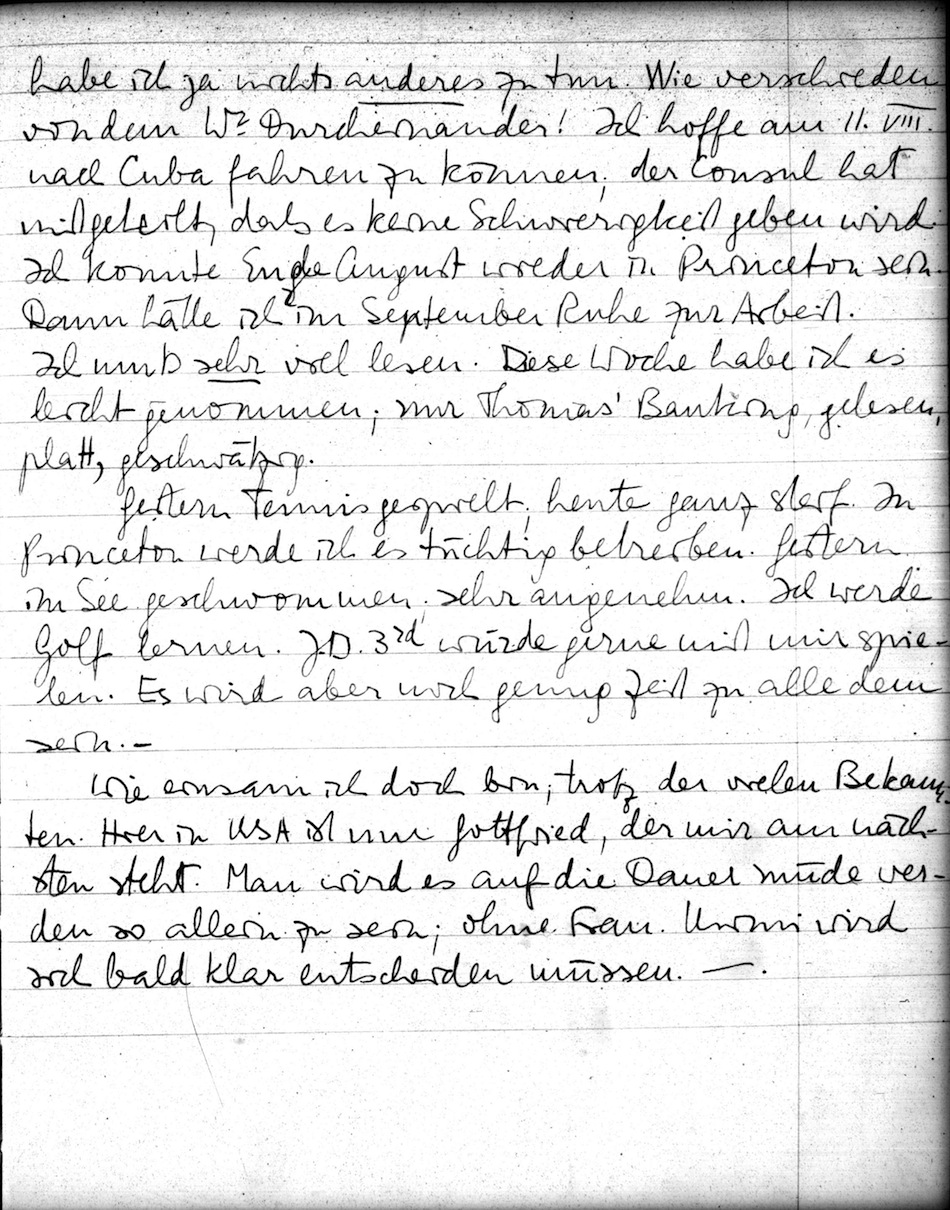 habe ich ja nichts anderes zu tun. Wie verschieden
von dem Wr Durcheinander! Ich hoffe am 11. VIII.
nach Cuba fahren zu können; der Consul hat
mitgeteilt, dass es keine Schwierigkeit geben wird.
Ich könnte Ende August wieder in Princeton sein.
Dann hätte ich im September Ruhe zur Arbeit.
Ich muß sehr viel lesen. Diese Woche habe ich es
leicht genommen; nur Thomas' Banking, gelesen,
platt, geschwätzig.
Gestern Tennis gespielt; heute ganz steif. In
Princeton werde ich es tüchtig betreiben. Gestern
im See geschwommen; sehr angenehm. Ich werde
Golf lernen. J.D. 3rd würde gerne mit mir spie-
len. Es wird aber noch genug Zeit zu alle dem
sein. –
Wie einsam ich doch bin, trotz der vielen Bekann-
ten. Hier in USA ist nur Gottfried, der mir am näch-
sten steht. Man wird es auf die Dauer müde wer-
den so allein zu sein; ohne Frau. wird
sich bald klar entscheiden müssen. —.